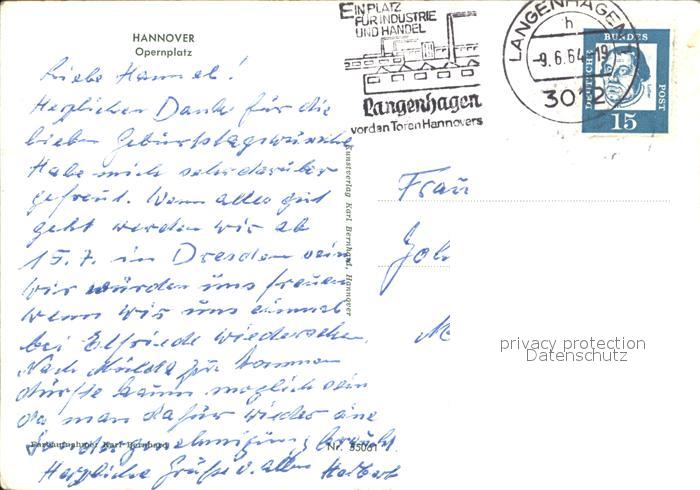 HANNOVER
Opernplatz
EIN PLATZ
FÜR INDUSTRIE
UND HANDEL
Langenhagen
vor den Toren Hannovers
LANGENHAGEN
h
-9.6.64-19
3012
DEUTSCHE BUNDES POST
Luther
15
Liebe Hannel!
Herzlichen Dank für die
lieben Geburtstagswünsche
Habe mich sehr darüber
gefreut. Wenn alles gut
geht werden wir ab
15.7. in Dresden sein
Wir würden uns freuen
wenn wir uns einmal
bei Elfriede wiedersehen.
Nach zu kommen
dürfte kaum möglich sein
da man dafür wieder eine
braucht
Herzliche Grüße v. allen Herbert
Farbaufnahme: Karl Bernhard
Nr. 55061
Kunstverlag Karl Bernhard, Hannover
Frau
Joh
privacy protection
Datenschutz